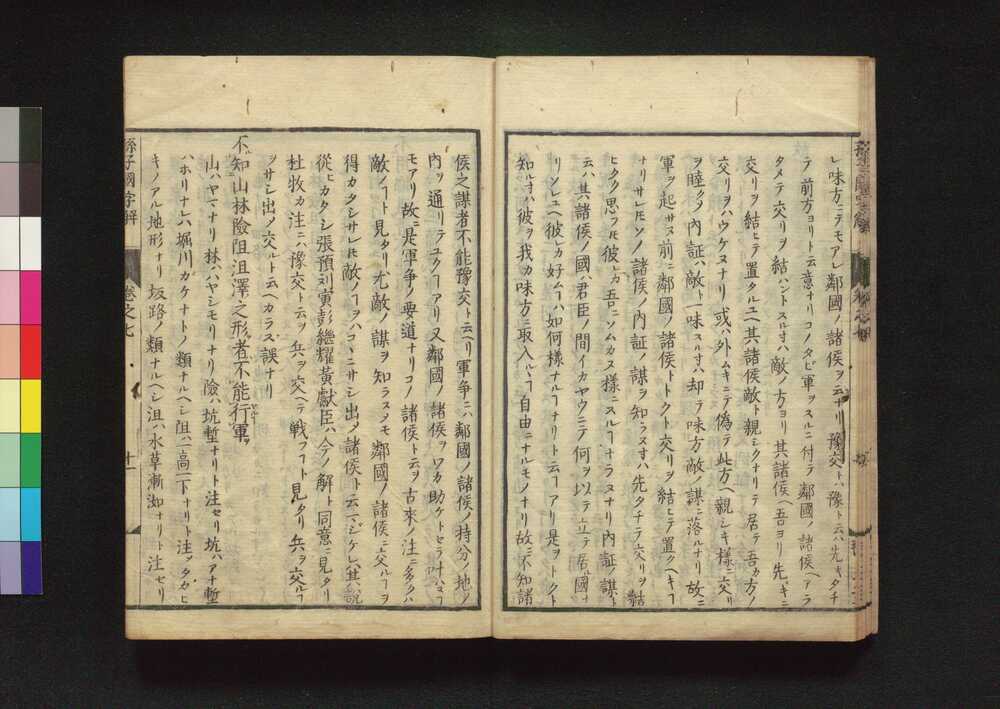 レ味方ニテモアレ鄰國ノ諸侯ヲ云ナリ豫交トハ豫ト云ハ先キタチ
テ前方ヨリト云意ナリコノタビ軍ヲスルニ付テ鄰國ノ諸侯ヘアラ
タメテ交リヲ結ハントスル寸ハ敵ノ方ヨリ其諸侯ヘ吾ヨリ先キニ
交リヲ結ヒテ置タルユヘ其諸侯敵ト親シクナリテ居テ吾カ方ノ
交リヲハウケヌナリ或ハ外ムキニテ偽テ此方ヘ親シキ様ニ交リ
ヲ睦クノ内証ハ敵ト一味スル寸ハ却テ味方敵ノ謀ニ落ルナリ故ニ
軍ヲ起サヌ前ニ鄰國ノ諸侯トトクト交リヲ結ヒテ置クヘキ
ナリサレ𪜈ソノ諸侯ノ内証ノ謀ヲ知ラヌ寸ハ先タチテ交リヲ結
ヒタク思フ𪜈彼レカ吾ニソムカヌ様ニスルヿナラヌナリ内証ノ謀ト
云ハ其諸侯ノ國ノ君臣ノ間イカヤウニテ何ヲ以テ立テ居ル國ナ
リソレユヘ彼レカ好ムヿハ如何様ナルヿナリト云ヿアリ是ヲトクト
知ル寸ハ彼ヲ我カ味方ニ取入ルヽヿ自由ニナルモノナリ故ニ不知諸
侯之謀者不能豫交ト云ヘリ軍争ニハ鄰國ノ諸侯ノ持分ノ地ノ
内ヲ通リテユクヿアリ又鄰國ノ諸侯ヲワカ助ケトセラ叶ハヌヿ
モアリ故ニ是軍争ノ要道ナリコノ諸侯ト云ヲ古來ノ注ニ多クハ
敵ノヿト見タリ尤敵ノ謀ヲ知ラスメモ鄰國ノ諸侯ニ交ルヿヲ
得カタシサレ𪜈敵ノヿヲハコヽニサシ出メ諸侯ト云ヘハシケレハ其説
從ヒカタシ張預刘寅彭繼耀黃獻臣ハ今ノ解ト同意ニ見タリ
杜牧カ注ニハ豫交ト云ヲ兵ヲ交ヘテ戦フヿト見タリ兵ヲ交ルヿ
ヲサシ出ノ交ルト云ヘカラス誤ナリ
不知山林險阻沮澤之形者不能行軍
山ハヤマナリ林ハハヤシモリナリ險ハ坑塹ナリト注セリ坑ハアナ塹
ハホリナレハ堀川カケナトノ類ナルヘシ阻ハ一高一下ナリト注ソタカヒ
キノアル地形ナリ坂路ノ類ナルヘシ沮ハ水草漸洳ナリト注セリ
孫子國字解
卷之七
十一